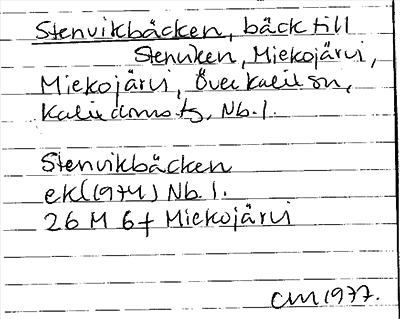 Stenvikbäcken, bäck till
Stenviken, Miekojärvi,
Miekojärvi, Överkalix sn,
Kalix domsts, Nb. l.
Stenvikbäcken
ekl (1974) Nb. l.
26 M 6f Miekojärvi
CM 1977.